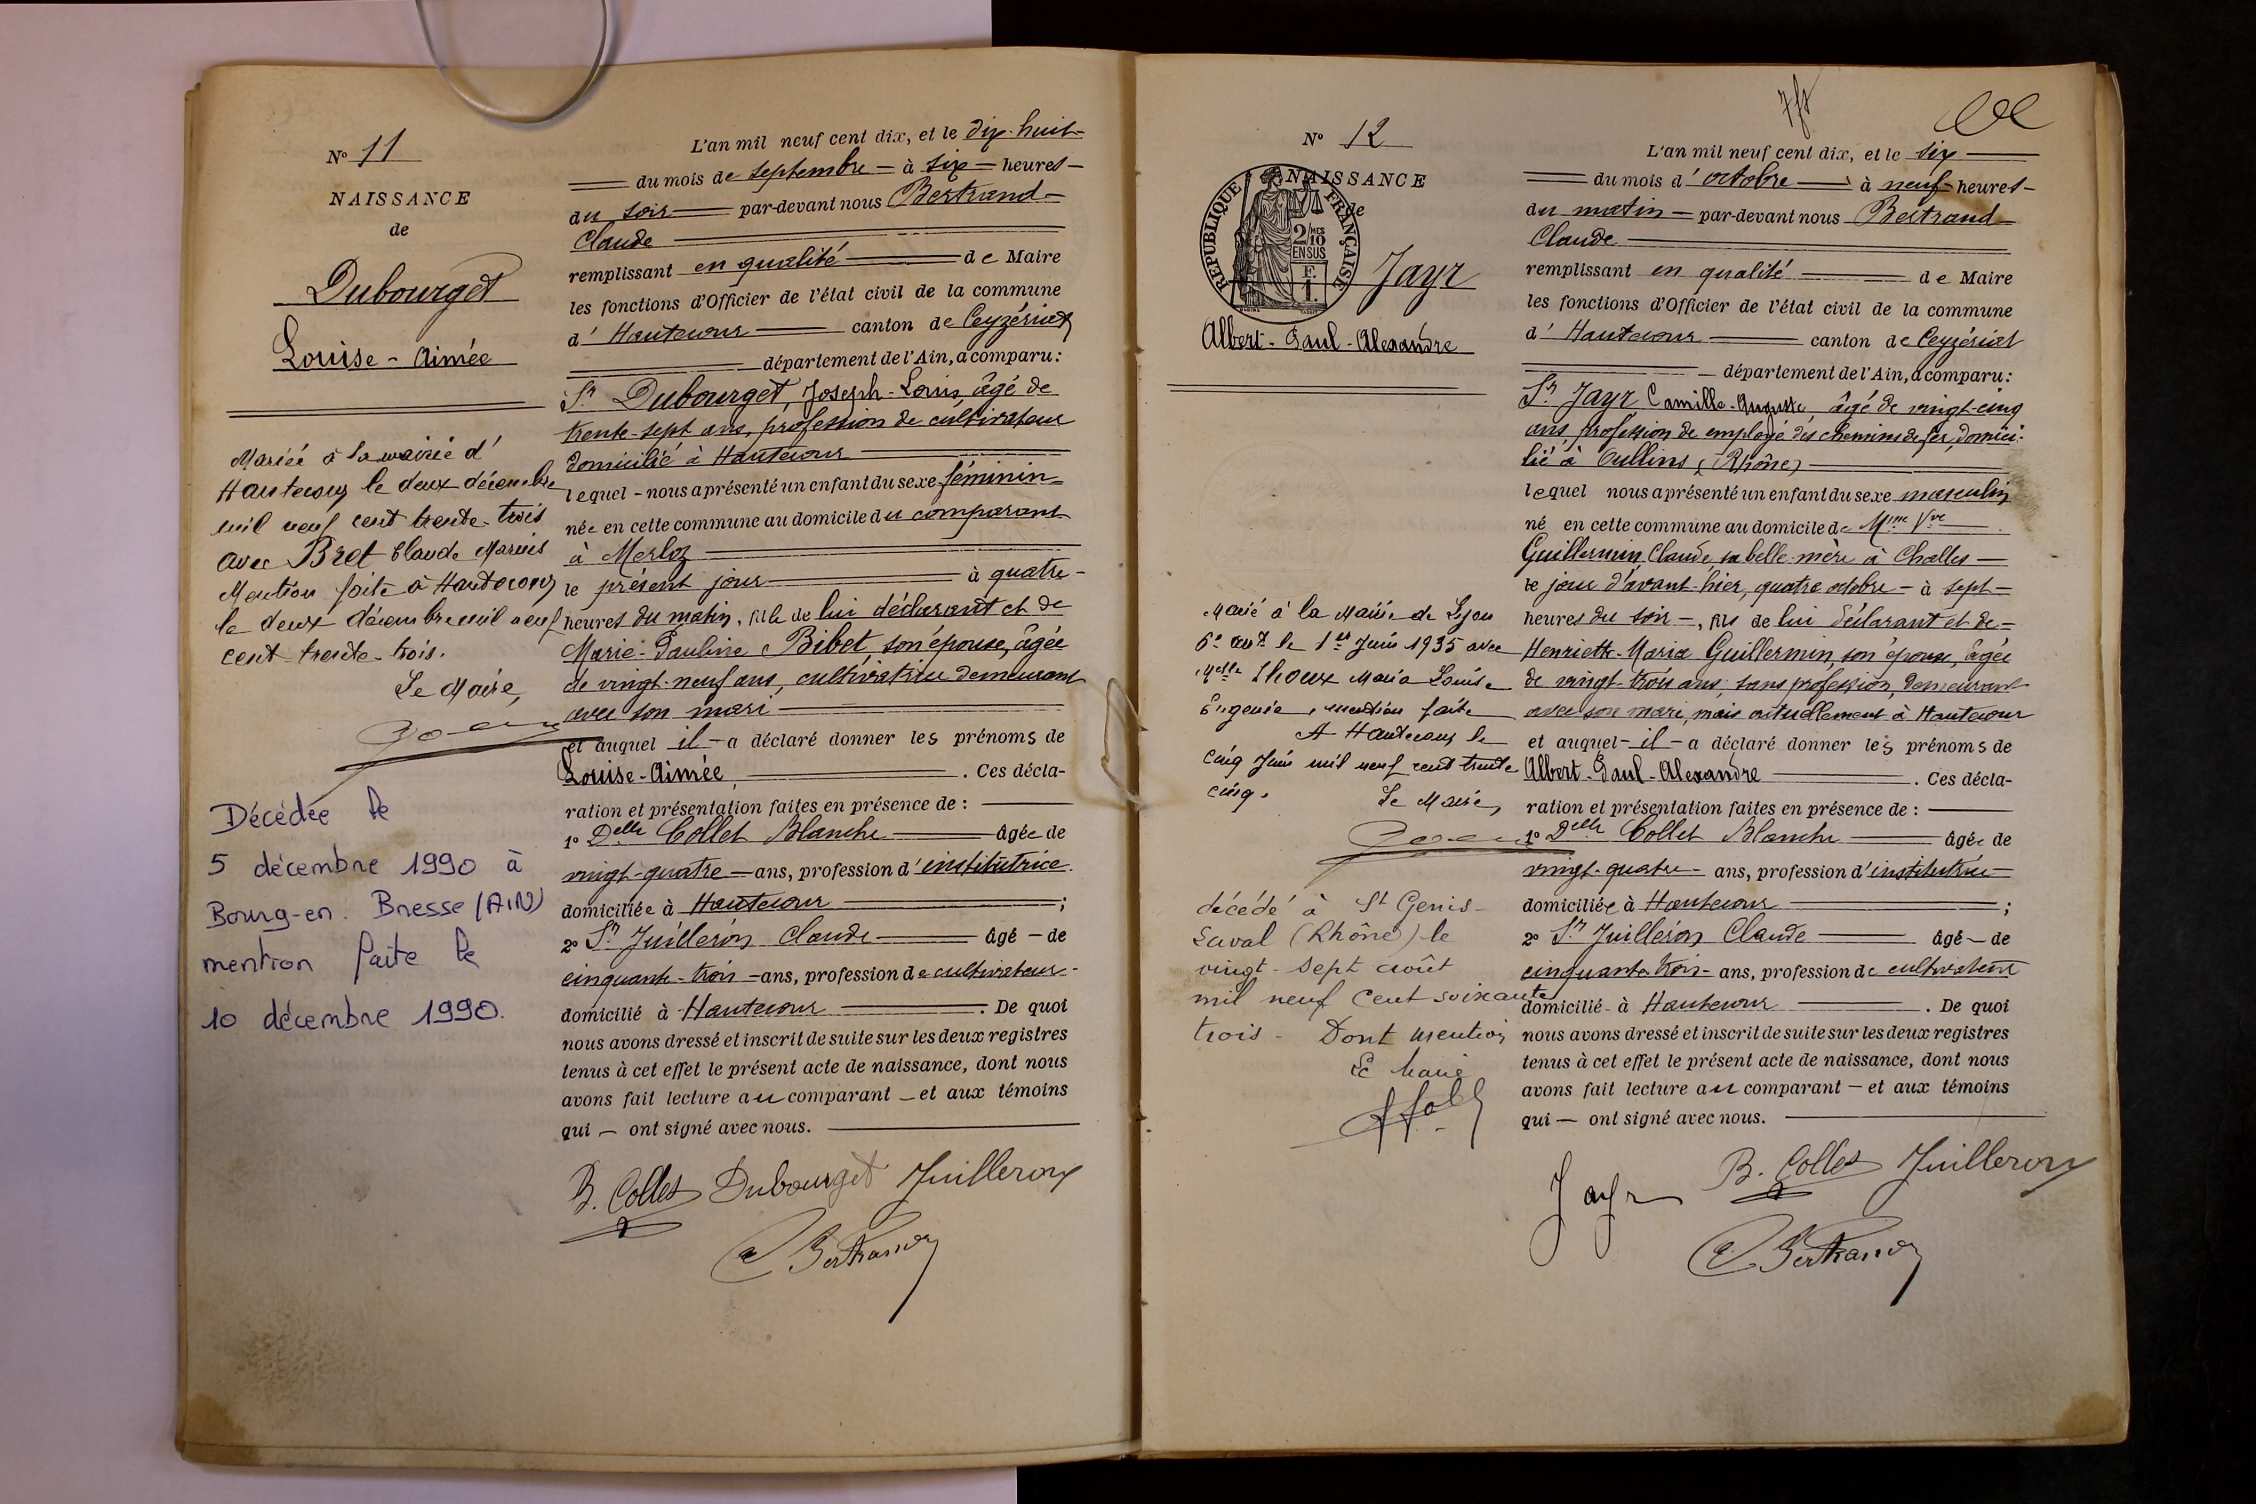 N° 11
NAISSANCE
de
Dubourget
Louise-Aimée
Mariée à la mairie d'
Hautecour le deux décembre
mil neuf cent trente-trois
avec Bret Claude Marius
Mention faite à Hautecour
le deux décembre mil neuf
cent trente-trois.
Le Maire,
Décédée le
5 décembre 1990 à
Bourg-en-Bresse (AIN)
mention faite le
10 décembre 1990.
L'an mil neuf cent dix, et le dix-huit
du mois de septembre à six heures
du soir par-devant nous Bertrand
Claude
remplissant en qualité de Maire
les fonctions d'Officier de l'état civil de la commune
d'Hautecour canton de Ceyzériat
département de l'Ain, a comparu:
Sr Dubourget, Joseph-Louis, âgé de
trente-sept ans, profession de cultivateur
domicilié à Hautecour
lequel nous a présenté un enfant du sexe féminin
née en cette commune au domicile du comparant
à Merloz
le présent jour à quatre
heures du matin, fille de lui déclarant et de
Marie-Pauline Bibet, son épouse, âgée
de vingt-neuf ans, cultivatrice demeurant
avec son mari
et auquel il a déclaré donner les prénoms de
Louise-Aimée. Ces décla-
ration et présentation faites en présence de :
1° Delle Collet Blanche âgée de
vingt-quatre ans, profession d'institutrice
domiciliée à Hautecour ;
2° Sr Juilleron Claude âgé de
cinquante-trois ans, profession de cultivateur
domicilié à Hautecour. De quoi
nous avons dressé et inscrit de suite sur les deux registres
tenus à cet effet le présent acte de naissance, dont nous
avons fait lecture au comparant et aux témoins
qui ont signé avec nous.
B. Collet Dubourget Juilleron
C Bertrand
N° 12
NAISSANCE
de
REPUBLIQUE FRANÇAISE
2/10 MES
EN SUS
F.
1.
Jayr
Albert-Paul-Alexandre
Marié à la Mairie de Lyon
6e arrt le 1er Juin 1935 avec
Melle Maria Louise
Eugenie, mention faite
A Hautecour le
cinq Juin mil neuf cent trente
cinq.
Le Maire,
décédé à St Genis-
Laval (Rhône) le
vingt-sept août
mil neuf cent soixante
trois - Dont mention
Le Maire
L'an mil neuf cent dix, et le six
du mois d'octobre à neuf heures
du matin par-devant nous Bertrand
Claude
remplissant en qualité de Maire
les fonctions d'Officier de l'état civil de la commune
d'Hautecour canton de Ceyzériat
département de l'Ain, a comparu:
Sr Jayr Camille-Auguste, âgé de vingt-cinq
ans, profession de employé des chemins de fer, domici-
lié à Oullins, (Rhône)
lequel nous a présenté un enfant du sexe masculin
né en cette commune au domicile de Mme Vve
Guillermin Claude, sa belle-mère à Challes
le jour d'avant-hier, quatre octobre à sept
heures du soir, fils de lui déclarant et de
Henriette-Maria Guillermin, son épouse, âgée
de vingt-trois ans, sans profession, demeurant
avec son mari, mais actuellement à Hautecour
et auquel il a déclaré donner les prénoms de
Albert-Paul-Alexandre. Ces décla-
ration et présentation faites en présence de :
1° Delle Collet Blanche âgée de
vingt-quatre ans, profession d'institutrice
domiciliée à Hautecour ;
2° Sr Juilleron Claude âgé de
cinquante-trois ans, profession de cultivateur
domicilié à Hautecour. De quoi
nous avons dressé et inscrit de suite sur les deux registres
tenus à cet effet le présent acte de naissance, dont nous
avons fait lecture au comparant et aux témoins
qui ont signé avec nous.
Jayr B. Collet Juilleron
C Bertrand